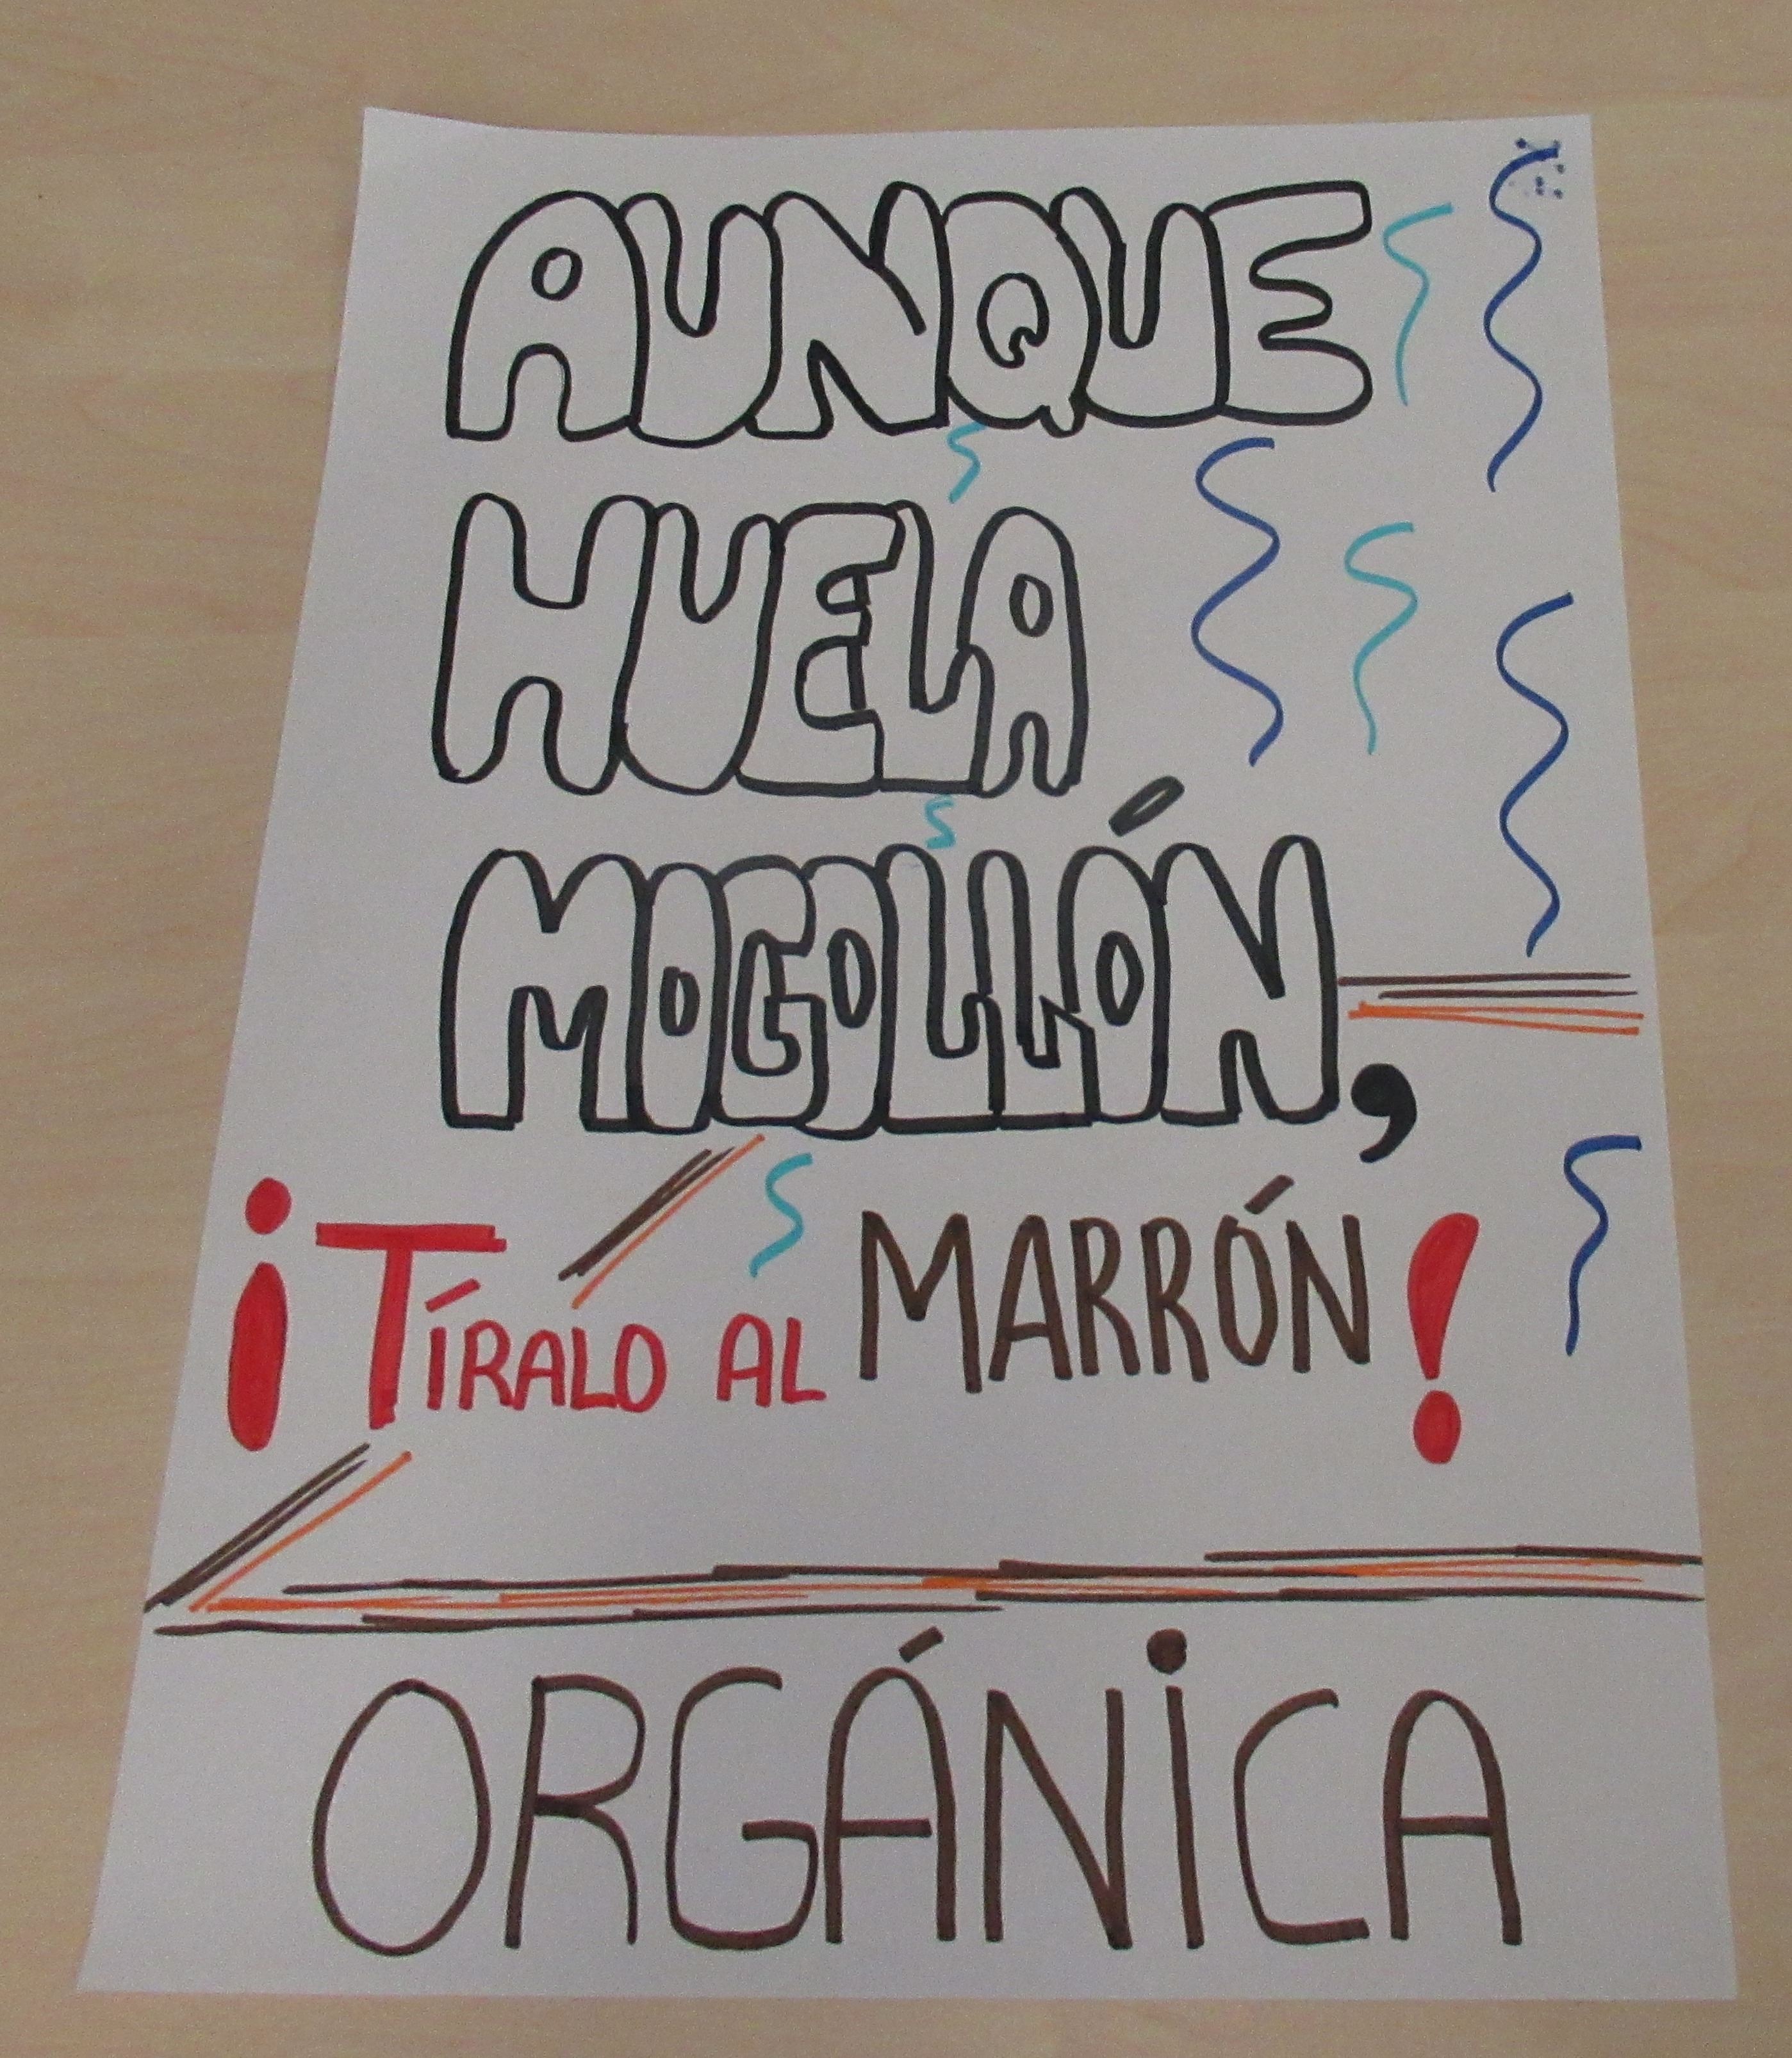 AUNQUE
HUELA
MOGOLLÓN,
¡TÍRALO AL MARRÓN!
ORGÁNiCA